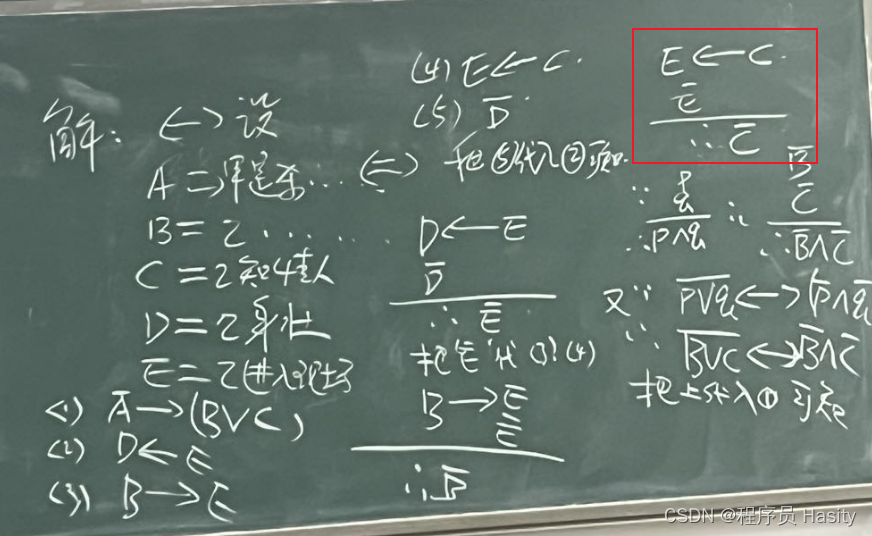 解: <-> 设
A => 甲是杀...
B = 乙......
C = 乙知情人
D = 乙身壮
E = 乙进入现场
<1> Ā→(B∨C)
<2> D←E
<3> B→E
(4) E←C.
(5) D̄
<=> 把⑤代入②可知.
D←E
D̄
∴Ē
把'Ē'代(3)(4)
B→E
Ē
∴B̄
E←C
Ē
∴C̄
B̄
C̄
∴B̄∧C̄
∵
∴P∧q
∵
又∵ P∨q̅<->P̄∧q̄
∴ B∨C̅<->B̄∧C̄
把上式代入① 可知
CSDN @程序员 Hasity